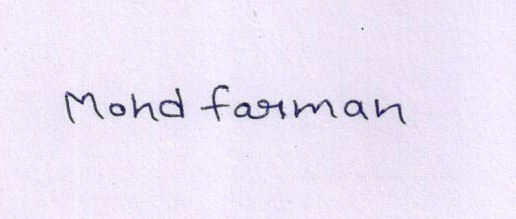 Mohd farman